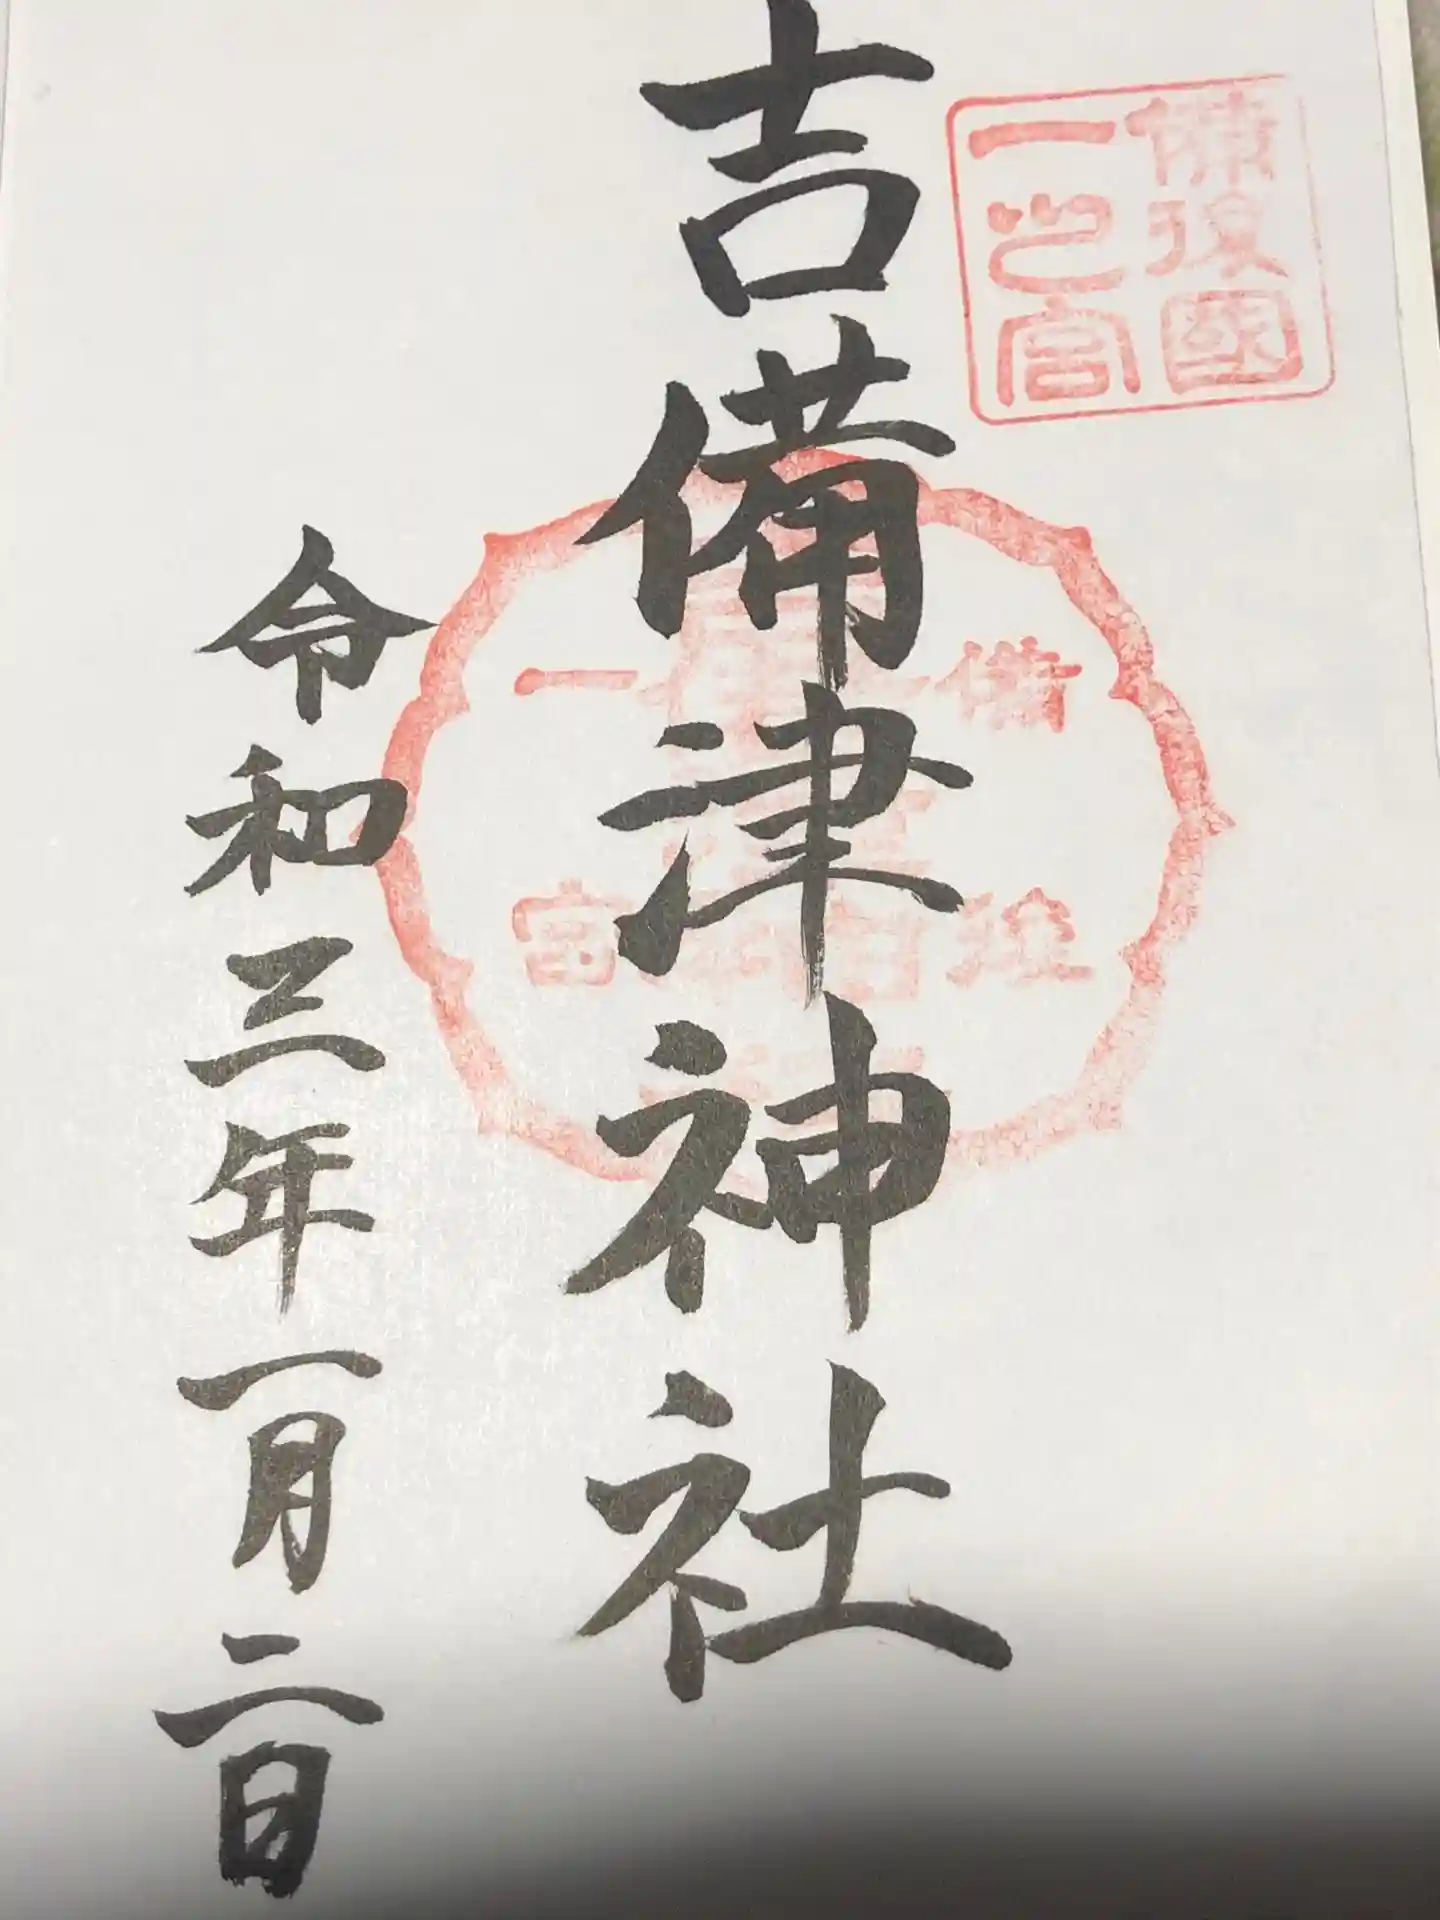 備後國
一之宮
吉備津神社
備後
一宮
令和三年一月二日